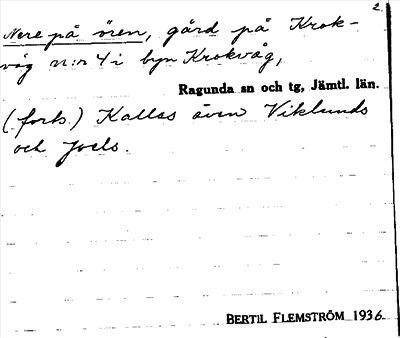 2.
Nere på ören, gård på Krok-
våg n:r 4 i byn Krokvåg,
Ragunda sn och tg, Jämtl. län.
(forts.) Kallas även Viklunds
och Joels.
BERTIL FLEMSTRÖM 1936.